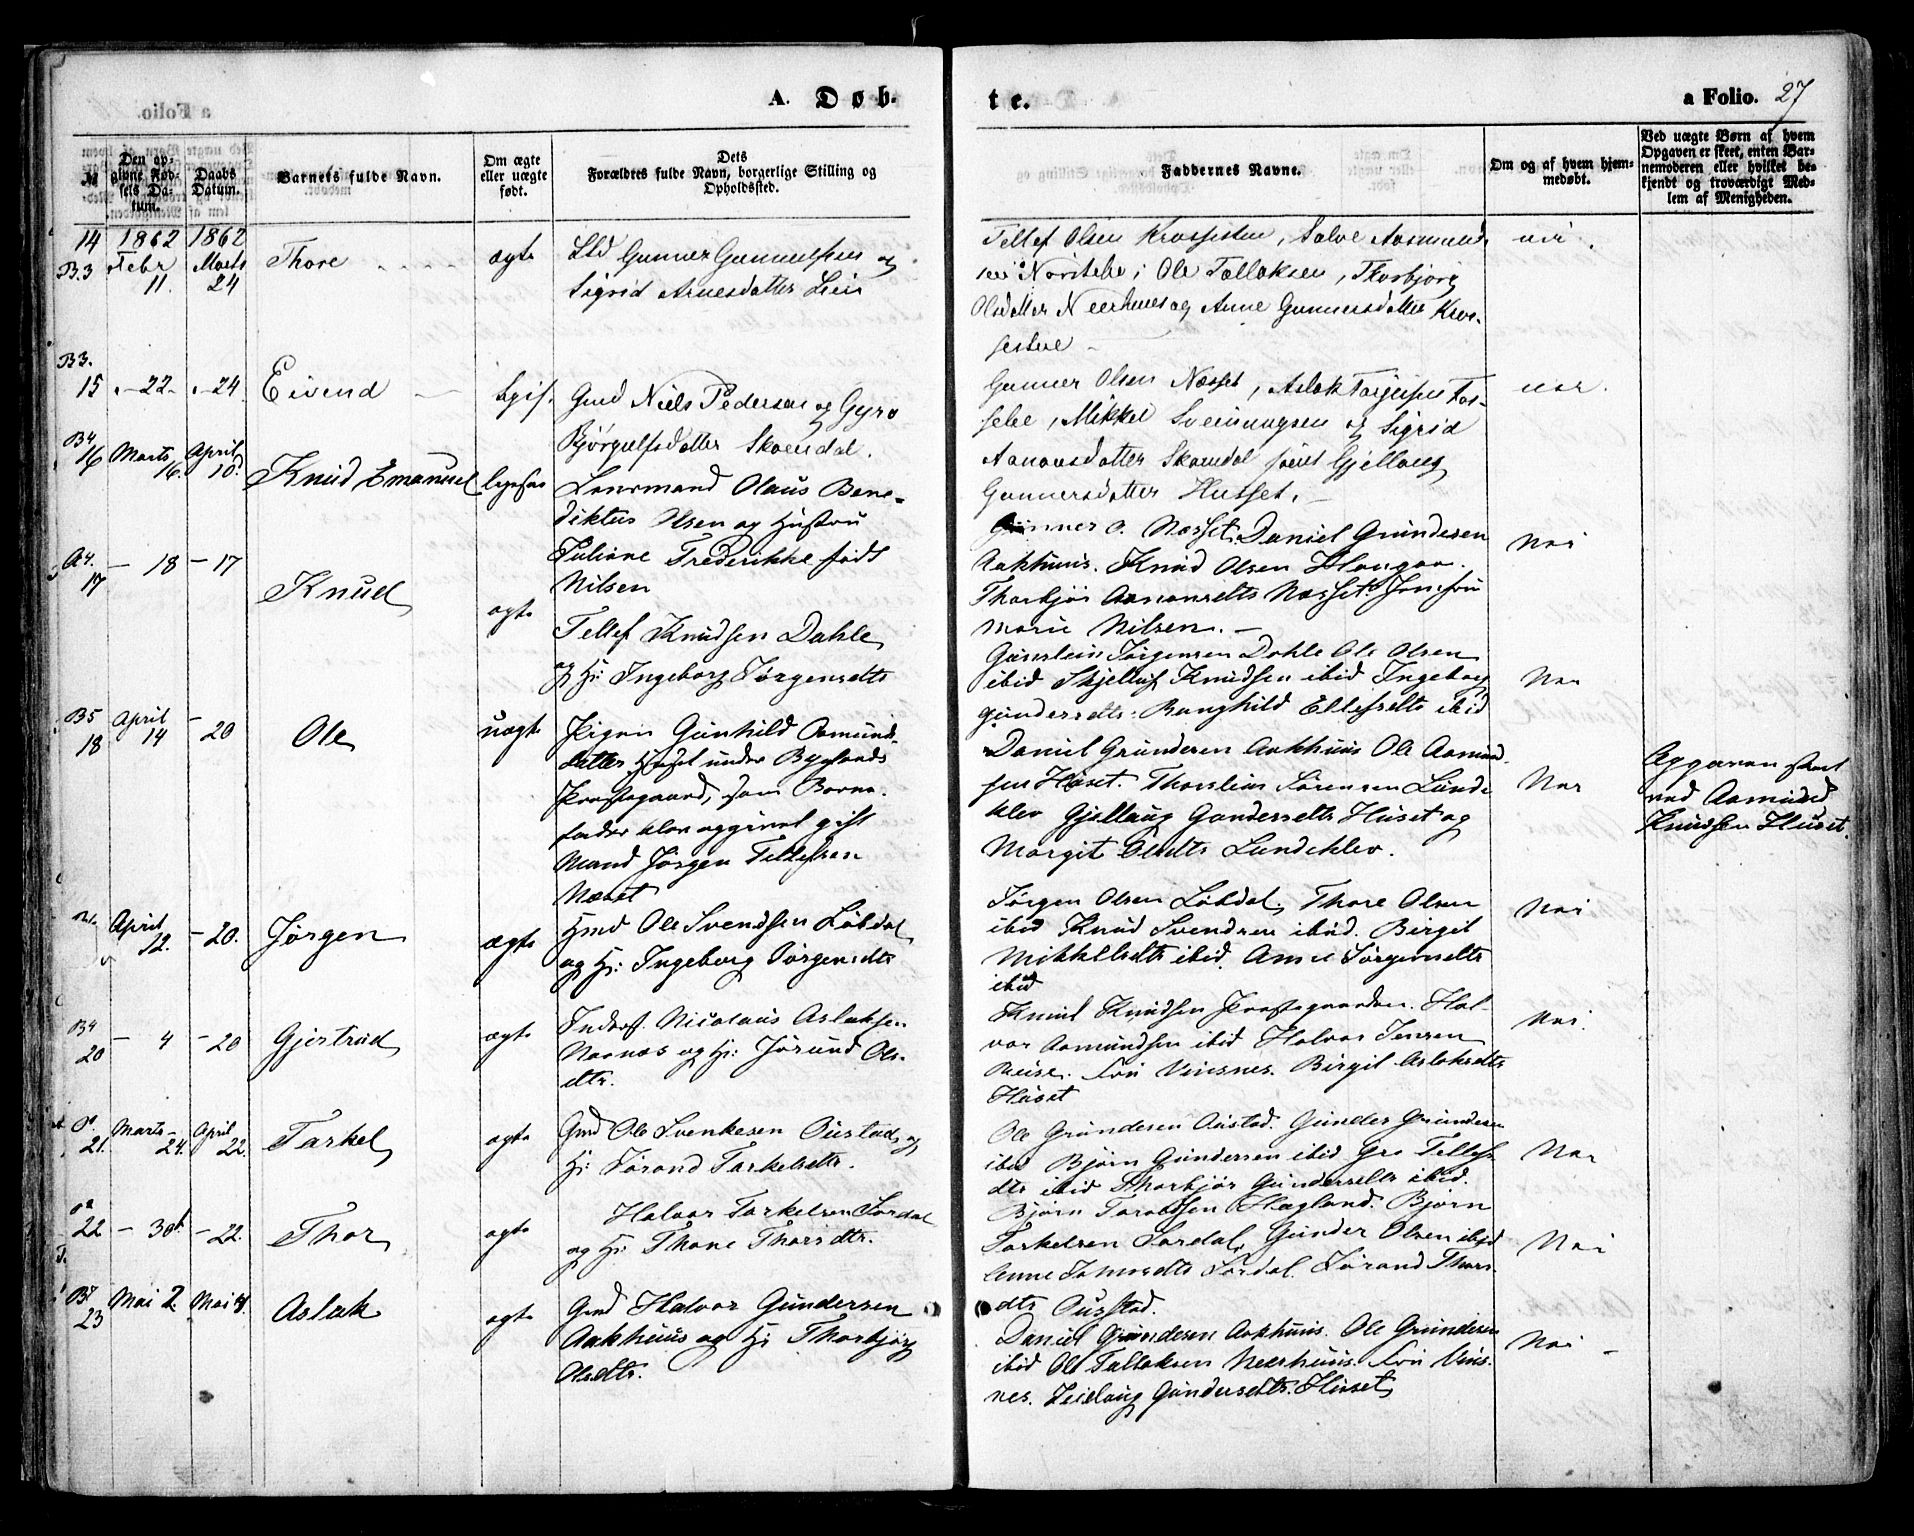 A. Døb-
te.
a Folio. 27
№
Den opgivne Fødsels Datum.
Daabs Datum.
Barnets fulde Navn.
Om ægte eller uægte født.
Dets Forældres fulde Navn, borgerlige Stilling og Opholdssted.
Faddernes Navne.
Om og af hvem hjemmedøbt.
Ved uægte Børn af hvem Opgaven er skeet, enten Barnemoderen eller hvilket bekjendt og troværdigt Medlem af Menigheden.
14 1862 1862
B.3 Febr 11. Marts 24
Thore
ægte
Gunner Gunnulfsen og
Sigrid Arnesdatter
Tellef Olsen , Salve Aasmund
Ole Tallaksen, Thorbjørg
Olsdatter Neerhuus og Anne Gunnersdatter
B3.
15 - 22 - - 24
Eivend
Gmd Niels Pedersen og Gyro
Bjørgulfsdatter Skomdal.
Gunner Olsen Næsset, Aslak
Mikkel Sveinungsen og Sigrid
Aanonsdatter Skomdal Gjellaug
Gunnersdatter Husset.
B4
16 Marts 16. April 10.
Knud Emanuel
Lensmand Olaus Bene-
diktus Olsen og Hustru
Juliane Frederikke født
Nilsen
Gunner O. Næsset. Daniel Gundersen
Aakhuus. Knud Olsen Haugaa.
Thorbjør Aanonsdtr Næsset. Jomfru
Marie Nilsen.
Nei
A4.
17 - 18 - 17
Knud
ægte
Tellef Knudsen Dahle
og H: Ingeborg Jørgensdtr
Gunstein Jørgensen Dahle Ole Olsen
ibid Knudsen ibid Ingeborg
Gundersdtr. Ranghild Ellefsdtr ibid
Nei
B5
18 April 14 - 20
Ole
uægte
Pigen Gunhild Aamund-
datter Huset under Byglands
Præstegaard, som Barne-
fader blev opgivet gift
Mand Jørgen Tellefsen
Næset
Daniel Gundersen Aakhuus Ole Aamund
sen Huset. Thorstein Sørensen Lunde
klev Gjellaug Gundersdtr Huset og
Margit Olsdtr Lundeklev.
Nei
Opgaven skeet
ved Aamund
Knudsen Huset.
April 12. - 20.
Jørgen
ægte
Hmd Ole Svendsen Løbdal
og H: Ingeborg Jørgensdtr
Jørgen Olsen Løbdal, Thore Olsen
ibid Knud Svendsen ibid. Birgit
Mikkelsdtr ibid. Anne Jørgensdtr
ibid
Nei
B4
20 - 4 - 20
Gjertrud
ægte
Inderst. Nicolaus Aslaksen
Næsnæs og H: Jørund Ols-
dtr.
Knud Knudsen Præstegaarden. Hal-
vor Aamundsen ibid Halvor Jensen
Reise. Frü Vinsnes. Birgit Aslaksdtr
Huset
Nei.
21. Marts 24. April 22.
Tarkel
ægte
Gmd Ole Svenkesen Austad og
H: Jørand Tarkelsdtr.
Ole Gundersen Austad. Gunder Gundersen
ibid Bjørn Gundersen ibid Gro Tellefs
dtr ibid Thorbjør Gundersdtr ibid.
Nei
22 - 30 - 22.
Thor
ægte
Halvor Tarkelsen Sordal
og H: Thone Thorsdtr.
Bjørn Hagland. Bjørn
Tarkelsen Sordal, Gunder Olsen ibid
Anne Sordal. Jørand Thors-
dtr Ousstad.
Nei
23 Mai 2. Mai 4.
Aslak
ægte
Gmd Halvor Gundersen
Aakhuus og H: Thorbjørg
Olsdtr.
Daniel Gundersen Aakhuus. Ole Gundersen
ibid Ole Tallaksen Neerhuus. Frü Vins-
nes. Gundersdtr. Huset
Nei